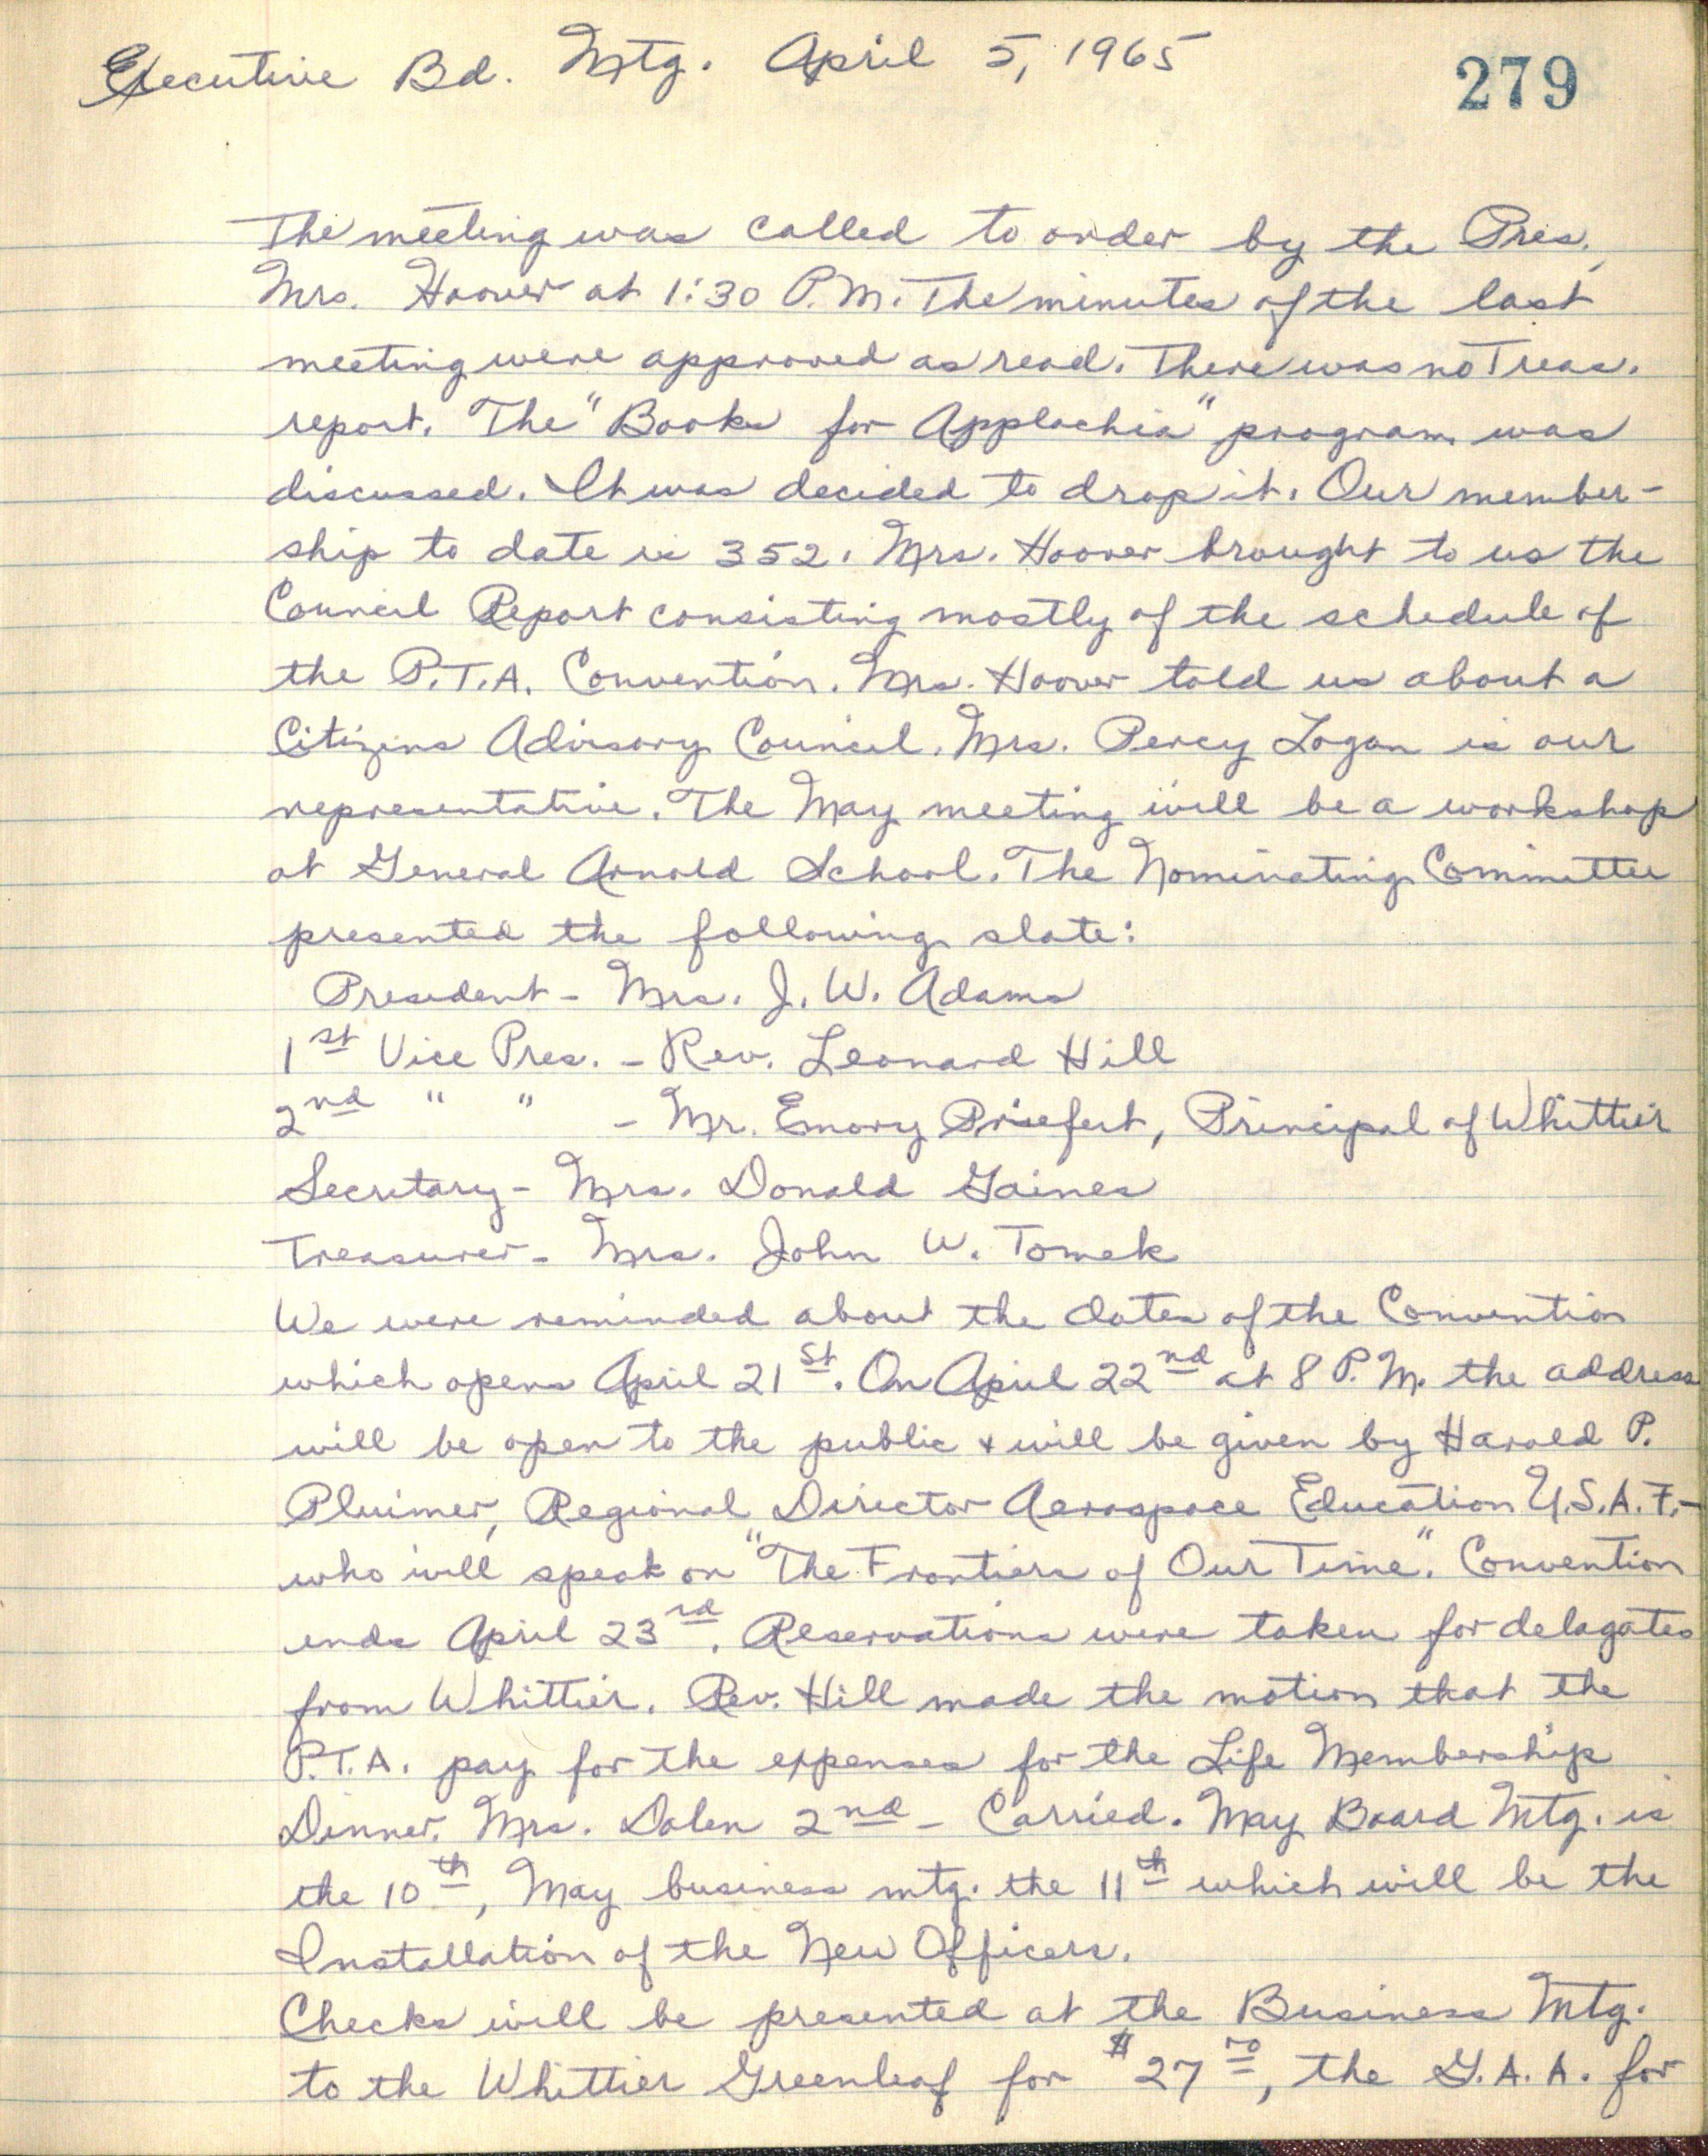 Executive Bd. Mtg. April 5, 1965
279
The meeting was called to order by the Pres.,
Mrs. Hoover at 1:30 P.M. The minutes of the last
meeting were approved as read. There was no Treas.
report. The "Books for Applachia" program was
discussed. It was decided to drop it. Our member-
ship to date is 352. Mrs. Hoover brought to us the
Council Report consisting mostly of the schedule of
the P.T.A. Convention. Mrs. Hoover told us about a
Citizens Advisory Council. Mrs. Percy Logan is our
representative. The May meeting will be a workshop
at General Arnold School. The Nominating Committee
presented the following slate:
President - Mrs. J. W. Adams
1st Vice Pres. - Rev. Leonard Hill
2nd " " - Mr. Emory Prisefert, Principal of Whittier
Secretary - Mrs. Donald Gaines
Treasurer - Mrs. John W. Tomek
We were reminded about the dates of the Convention
which opens April 21st. On April 22nd at 8 P.M. the address
will be open to the public & will be given by Harold P.
Pluimer, Regional Director Aerospace Education U.S.A.F.-
who will speak on "The Frontiers of Our Time". Convention
ends April 23rd. Reservations were taken for delagates
from Whittier. Rev. Hill made the motion that the
P.T.A. pay for the expenses for the Life Membership
Dinner. Mrs. Dolen 2nd - Carried. May Board Mtg. is
the 10th, May business mtg. the 11th which will be the
Installation of the New Officers.
Checks will be presented at the Business Mtg.
to the Whittier Greenleaf for $27, the G.A.A. for